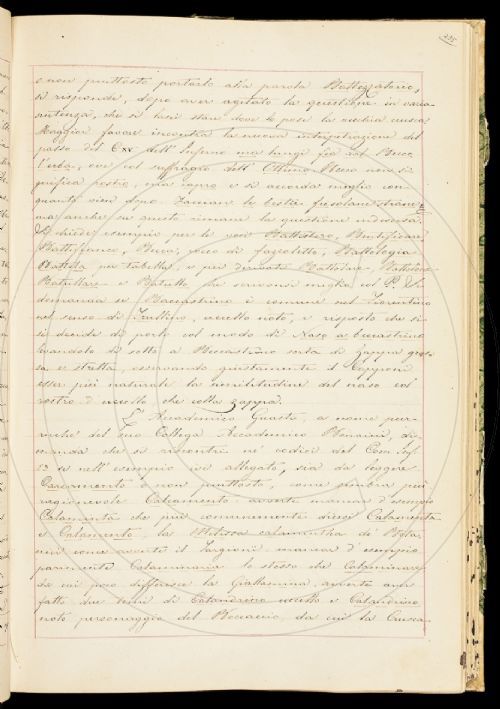 e non piuttosto portarlo alla parola Battezzatorio,
si risponde, dopo aver agitato la questione in varia
antenza, che si lasci stare dove lo pose la vecchia Crusca
Maggior favore incontra la nuova interpetrazione del
passo del C. XV dell' Inferno ma lungi fia dal Becco
l'erba, ove col suffragio dell' Ottimo Becco non si
gnifica rostro, ma capro e si accorda meglio con
quanto vien dopo: Faccian le bestie fiesolane strame
ma anche su questo rimane la questione indecisa.
Si chiede esempio per le voci Battistero, Beatificare,
Battifianco, Becco, pezzo di fazzoletto, Battologia
Battola per tabella, e pei derivati Battolare,
Battellare e Batullo, su cannonsi meglio col P. Si
domanda se Beccastrino è comune nel Fiorentino
nel senso di Frullino, uccello noto, e risposto che sì
si decide di porlo col modo di Naso a beccastrino
levandolo di sotto a Beccastrino sorta di zappa gros
sa e stretta, osservando giustamente il Coppini
esser più naturale la similitudine del naso col
rostro d' uccello che colla zappa.
L' Accademico Guasti, a nome pur
anche del suo Collega Accademico Bonaini, di
manda che si riscontri ne' codici del Com. Inf.
23 se nell' esempio ivi allegato, sia da leggere
Calcamento o non piuttosto, come sembra più
ragionevole Calcamento avente manca d' esempio
Calaminta che più comunemente dicesi Calamenta
e Calamento, la Melissa calamintha di Bota
nici come avverte il Targioni, manca d' esempio
parimente Calaminaria lo stesso che Calaminare
da cui poco differisce la Giallamina, avverte aver
fatto due temi di Calandrino uccello e Calandrino
noto personaggio del Boccaccio, da cui la Crusca